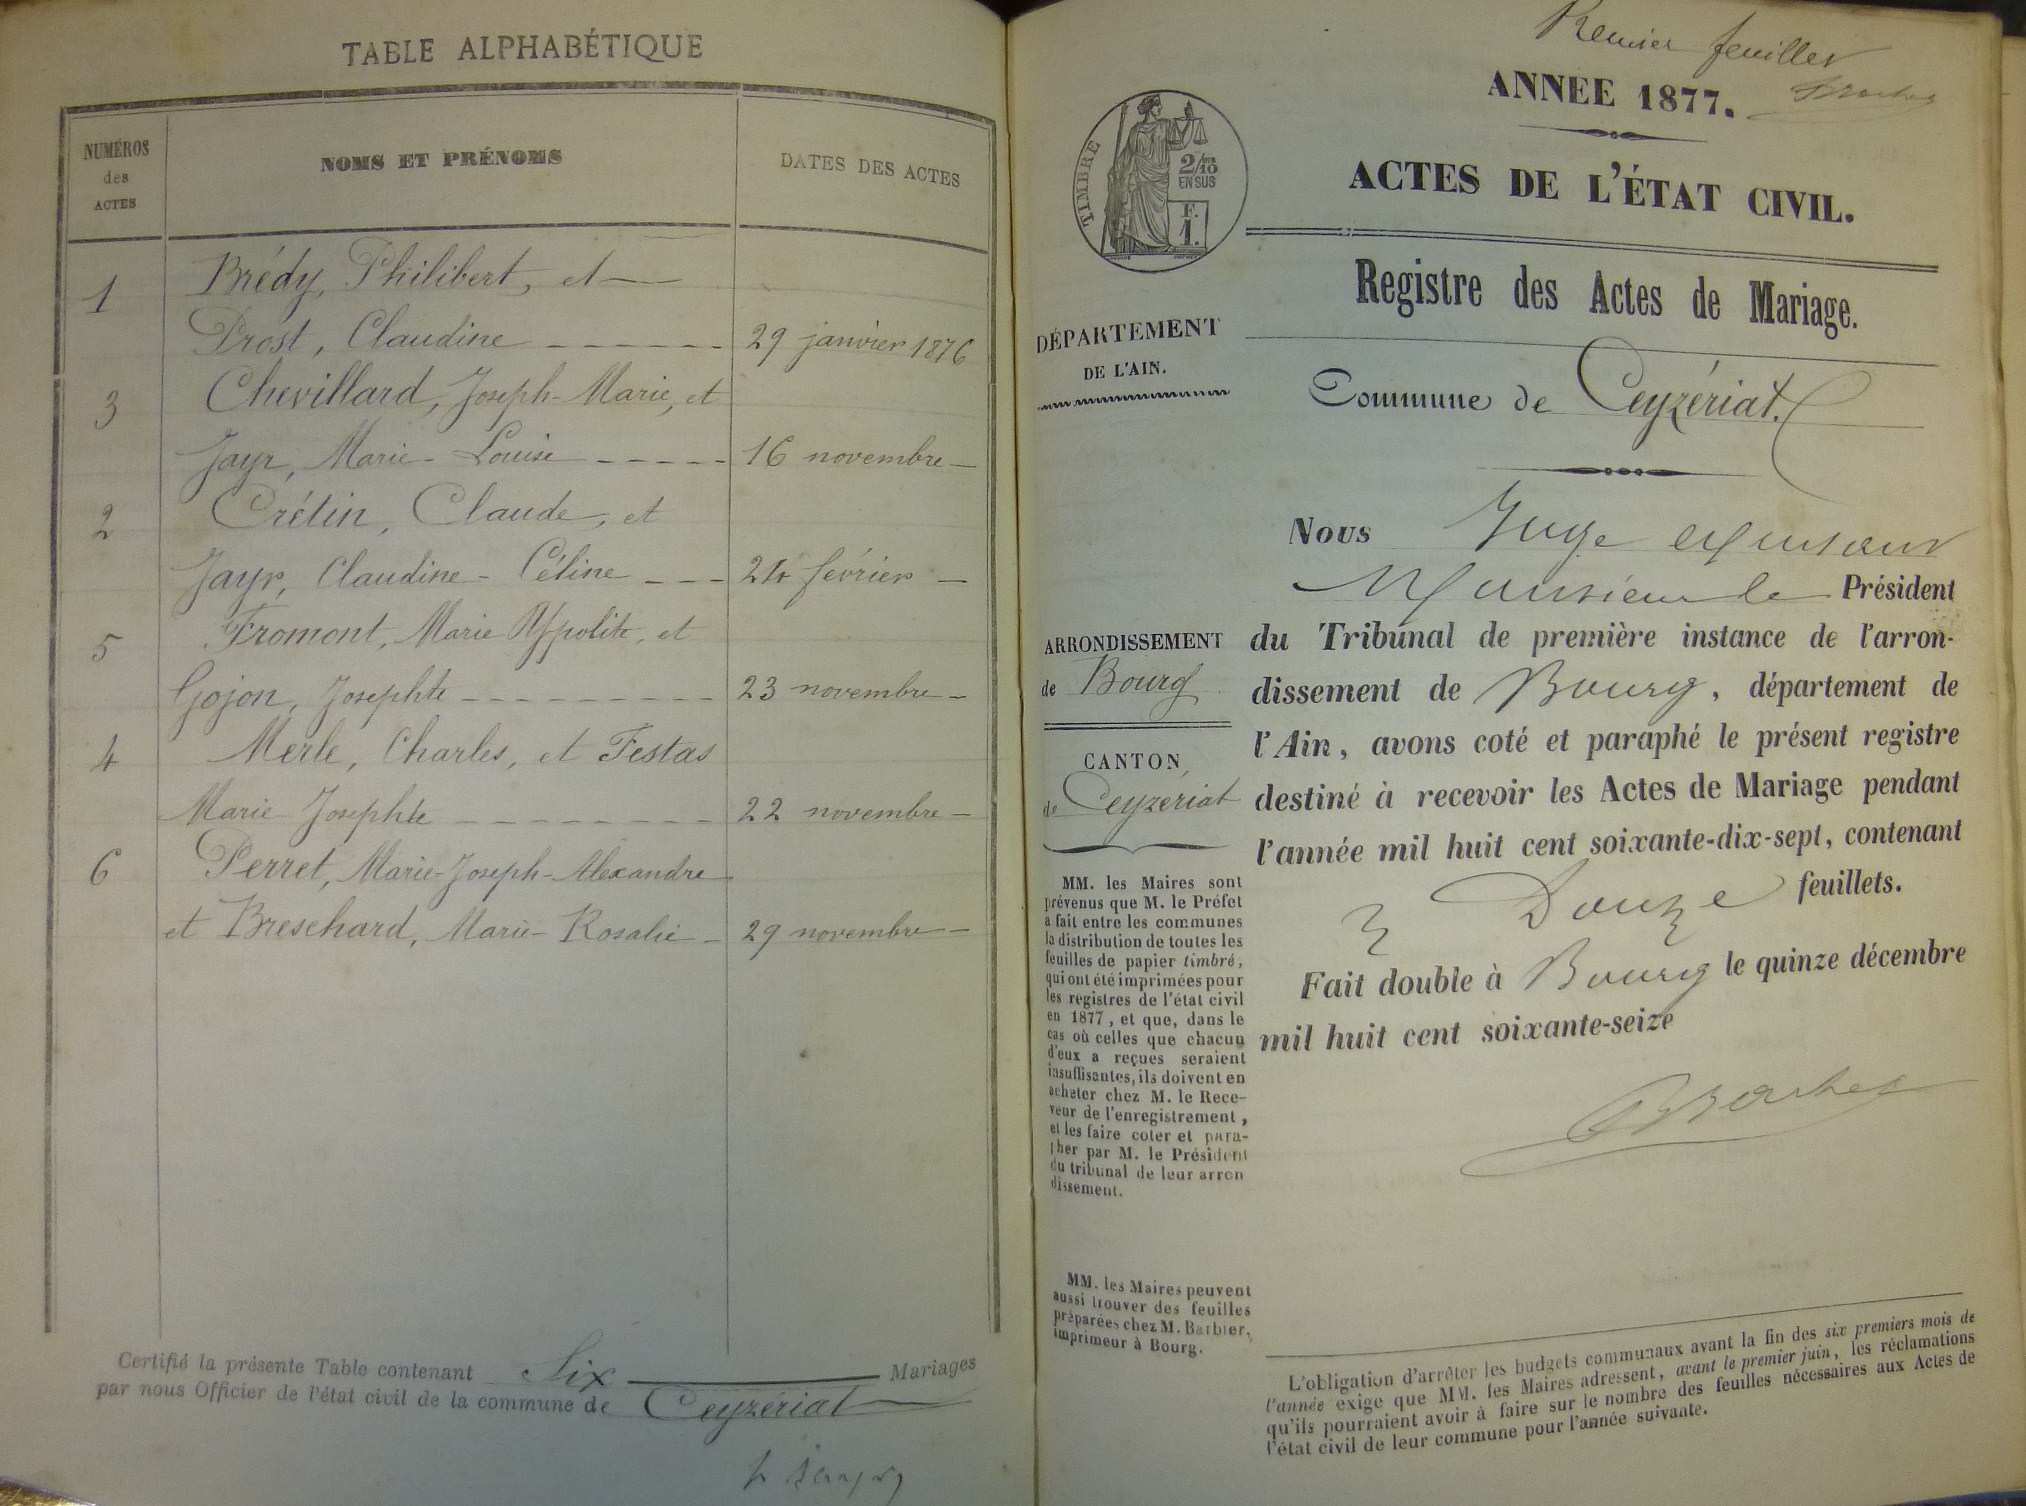 TABLE ALPHABÉTIQUE
NUMÉROS
des
ACTES
NOMS ET PRÉNOMS
DATES DES ACTES
1 Brédy, Philibert, et —
Prost, Claudine - - - - - - 29 janvier 1876
3 Chevillard, Joseph-Marie, et
Jayr, Marie-Louise - - - - - 16 novembre -
2 Crétin, Claude, et
Jayr, Claudine-Céline - - - 24 février -
5 Fromont, Marie Hyppolite, et
Gojon, Josephte - - - - - - - - - 23 novembre -
4 Merle, Charles, et Festas
Marie Josephte - - - - - - - - - 22 novembre -
6 Perret, Marie-Joseph-Alexandre
et Breschard, Marie-Rosalie - 29 novembre -
Certifié la présente Table contenant Six Mariages
par nous Officier de l'état civil de la commune de Ceyzériat
Premier feuillet
ANNÉE 1877.
ACTES DE L'ÉTAT CIVIL.
TIMBRE
2/10
EN SUS
F.
1.
Registre des Actes de Mariage.
DÉPARTEMENT
DE L'AIN.
Commune de Ceyzériat.
ARRONDISSEMENT
de Bourg
CANTON
de Ceyzériat
MM. les Maires sont
prévenus que M. le Préfet
a fait entre les communes
la distribution de toutes les
feuilles de papier timbré,
qui ont été imprimées pour
les registres de l'état civil
en 1877, et que, dans le
cas où celles que chacun
d'eux a reçues seraient
insuffisantes, ils doivent en
acheter chez M. le Rece-
veur de l'enregistrement,
et les faire coter et para-
pher par M. le Président
du tribunal de leur arron
dissement.
MM. les Maires peuvent
aussi trouver des feuilles
préparées chez M. Barbier,
imprimeur à Bourg.
Nous Juge
Monsieur le Président
du Tribunal de première instance de l'arron-
dissement de Bourg, département de
l'Ain, avons coté et paraphé le présent registre
destiné à recevoir les Actes de Mariage pendant
l'année mil huit cent soixante-dix-sept, contenant
Douze feuillets.
Fait double à Bourg le quinze décembre
mil huit cent soixante-seize
L'obligation d'arrêter les budgets communaux avant la fin des six premiers mois de
l'année exige que MM. les Maires adressent, avant le premier juin, les réclamations
qu'ils pourraient avoir à faire sur le nombre des feuilles nécessaires aux Actes de
l'état civil de leur commune pour l'année suivante.